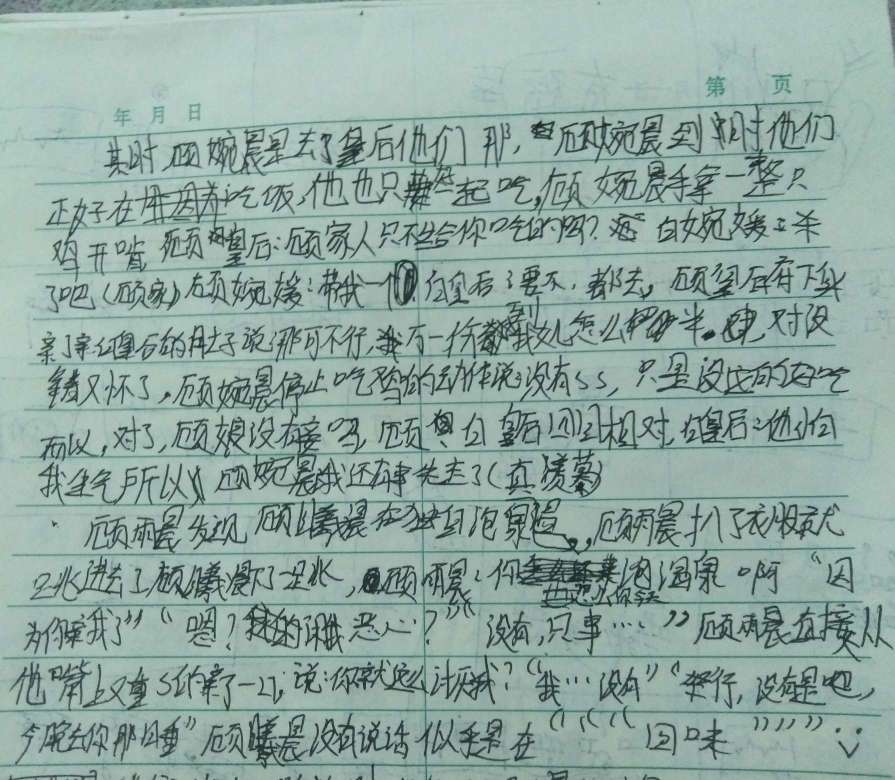 第 页
年 月 日
其时,顾婉晨是去了皇后他们那,顾婉晨到时他们
正好在吃饭,他也只一起吃,顾婉晨手拿一整只
鸡开啃 顾皇后:顾家人只不给你吃的吗? 白婉媛:杀
了吧(顾家)顾婉媛:带我一个 白皇后:要不,都去,顾皇后府下身
亲了亲白皇后的肚子说:那可不行,万一我女儿怎么,对没
错又怀了,顾婉晨停止吃鸡的动作说:没有ss,只是没这的好吃
而以,对了,顾娘没有 顾 白皇后四目相对,白皇后:他们白
我生气所以 顾婉晨我还有事先走了(真羡慕)
顾雨晨发现顾曦晨在独自泡泉,顾雨晨扒了衣服就
跳进去了顾曦晨下了一跳,顾雨晨:你泡温泉啊 “因
也怎么你会
为你亲我了” “嗯?我恶心?” “没有,只事…” 顾雨晨直接从
他嘴上又重ss的亲了一口,说:你就这么讨厌我?“我…没有” “行,没有是吧,
今晚去你那睡” 顾曦晨没有说话似乎是在““““回味””””